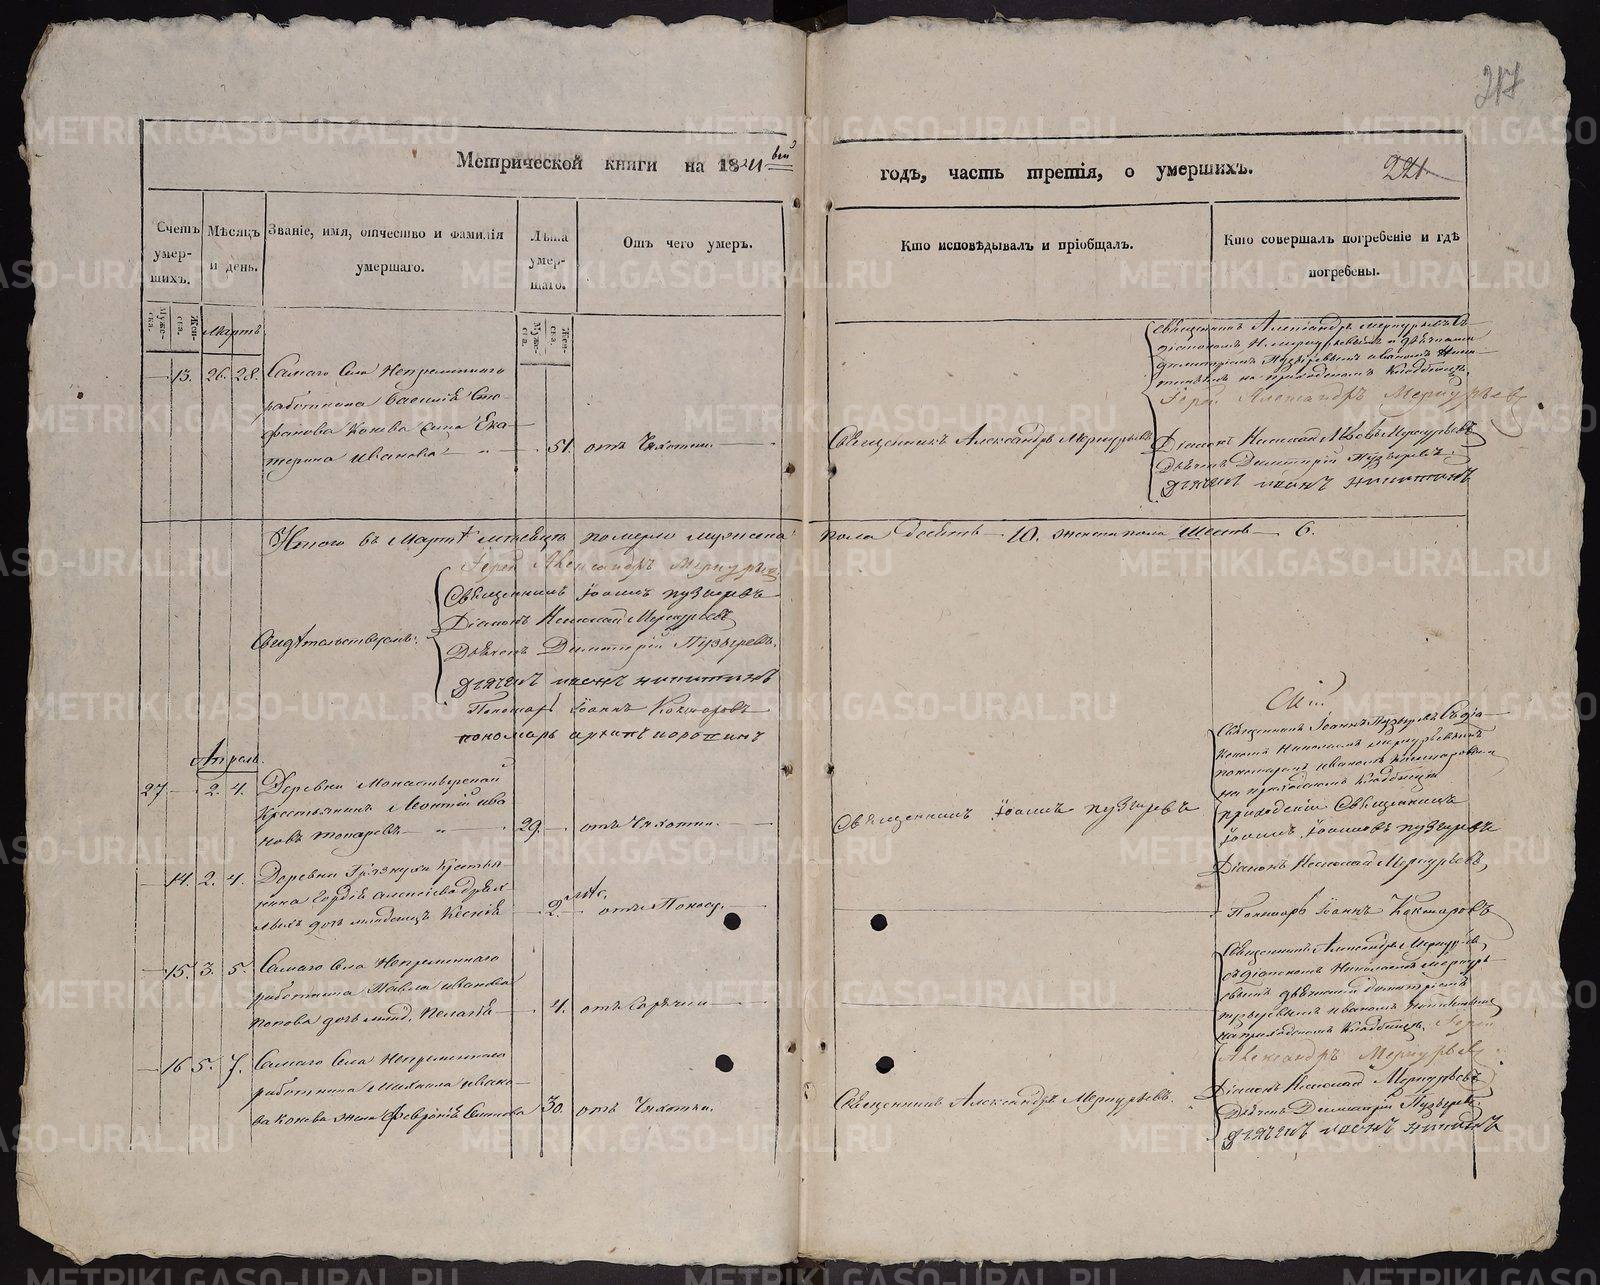 217
Метрической книги на 1841вый
годъ, часть третія, о умершихъ.
221
Счетъ умер-
шихъ.
Муже-
ска.
Жен-
ска.
Мѣсяцъ
и день.
Званіе, имя, отчество и фамилія
умершаго.
Лѣта
умер-
шаго.
Муже-
ска.
Жен-
ска.
Отъ чего умеръ.
Кто исповѣдывалъ и пріобщалъ.
Кто совершалъ погребеніе и гдѣ
погребены.
Мартъ
13. 26. 28. Самаго Села Непременнаго
работника Василія Сте-
фанова Конева жена Ека-
терина Иванова 51. отъ Чахотки.
Священникъ Александръ Меркурьевъ
Священникъ Александръ Меркурьевъ Съ
діакономъ
на приходскомъ Кладбищѣ.
Іерей Александръ Меркурьевъ
Діаконъ Николай Меркурьевъ
Дьячекъ Димитрій Пузыревъ
Дьячекъ Иванъ Никитинъ
Итого въ Мартѣ мѣсяцѣ померло мужеска
пола десять 10. женска пола шесть 6.
Свидѣтельствуемъ:
Іерей Александръ Меркурьевъ
Священникъ Іоаннъ Пузыревъ
Діаконъ Николай Меркурьевъ
Дьячекъ Димитрій Пузыревъ.
Дьячекъ Иванъ Никитинъ
Пономарь Іоаннъ Кокшаровъ
пономарь
Апрель.
27 2. 4. Деревни Монастырской
Крестьянинъ Леонтій Ива
новъ Токаревъ 29. отъ Чахотки.
Священникъ Іоаннъ Пузыревъ
Священникъ Іоаннъ Пузыревъ Съ діа-
кономъ Николаемъ Меркурьевымъ
пономаремъ Иваномъ Кокшаровымъ
на приходскомъ Кладбищѣ
приходскій Священникъ
Іоаннъ Іоанновъ Пузыревъ
Діаконъ Николай Меркурьевъ
Пономарь Іоаннъ Кокшаровъ
14. 2. 4. Деревни Грязнухи Крестья
нина Гордѣя Алексѣева
дочь младенецъ Ксенія 2. мѣс. отъ Поносу.
15. 3. 5. Самаго Села Непременнаго
работника Павла Иванова
Попова дочь млад. Пелагія 4. отъ Горячки
Священникъ Александръ Меркурьевъ
съ діакономъ Николаемъ Меркурь-
евымъ дьячками Димитріемъ
Пузыревымъ Иваномъ Никитинымъ
на приходскомъ Кладбищѣ. Іерей
Александръ Меркурьевъ
16 5. 7. Самаго Села Непременнаго
работника Михаила Ивано-
ва Конева жена Февронія 30. отъ Чахотки.
Священникъ Александръ Меркурьевъ.
Діаконъ Николай Меркурьевъ
Дьячекъ Димитрій Пузыревъ
Дьячекъ Иванъ Никитинъ
METRIKI.GASO-URAL.RU